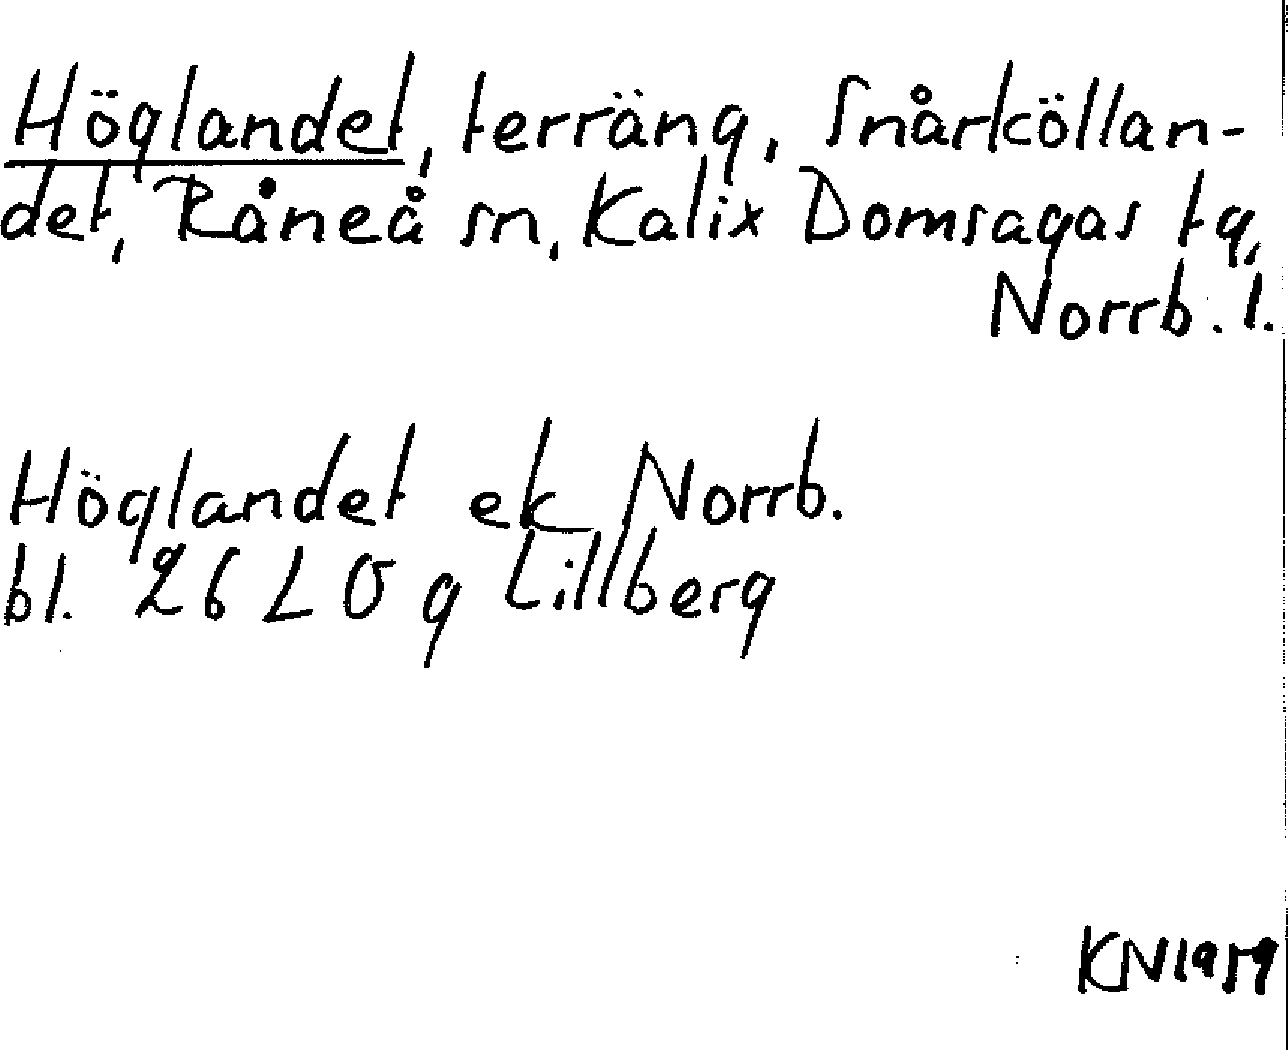 Höglandet, terräng, Snårköllan-
det, Råneå sn, Kalix Domsagas tg,
Norrb. l.
Höglandet ek Norrb.
bl. 26 L 0 g Lillberg
KN 1959